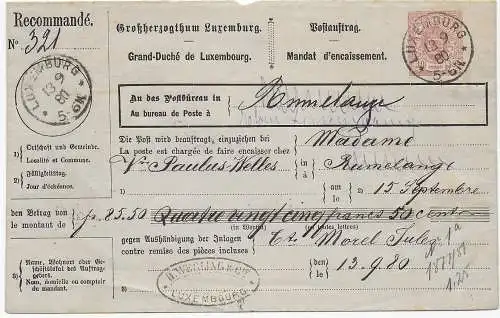 Recommandé.
Nº 321
Großherzogthum Luxemburg.
Grand-Duché de Luxembourg.
Postauftrag.
Mandat d'encaissement.
LUXEMBURG
13 9
80
5-6N
LUXEMBURG
13 9
80
5-6N
An das Postbüreau in
Au bureau de Poste à
Rumelange
Die Post wird beauftragt, einzuziehen bei
La poste est chargée de faire encaisser chez
Madame
Ve Paulus Welles
in
à
Rumelange
am
le
15 Septembre
1) Ortschaft und Gemeinde.
Localité et Commune.
2) Fälligkeitstag.
Jour d'échéance.
den Betrag von
le montant de
fr. 85.50
Quatre vingt cinq francs 50 cent
(in Worten)
(en toutes lettres)
gegen Aushändigung der Inlagen
contre remise des pièces incluses
3) Name, Wohnort oder Geschäftslokal des Auftraggebers.
Nom, domicile ou comptoir du mandant.
3)
den
le
13.9.80
WERLING & Cie
LUXEMBOURG
1.25